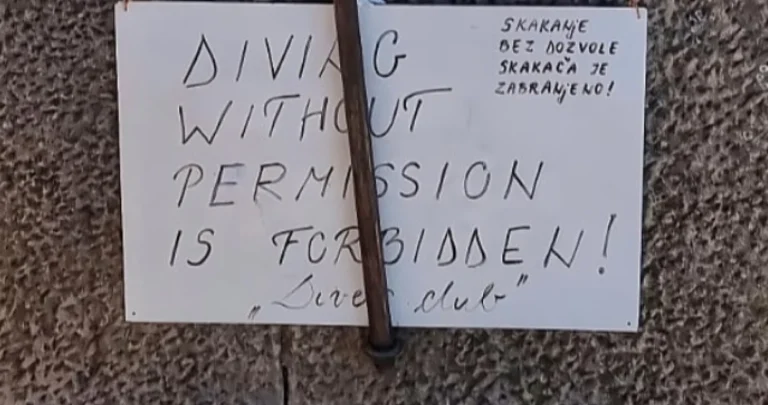 DIVING
WITHOUT
PERMISSION
IS FORBIDDEN!
„Divers club"
SKAKANjE
BEZ DOZVOLE
SKAKAČA JE
ZABRANjENO!